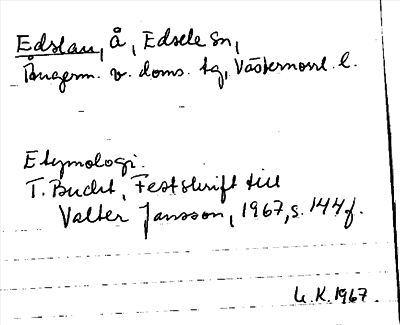 Edslan, å, Edsele sn,
Ångerm. v. doms. tg, Västernorrl. l.
Etymologi.
T. Bucht, Festskrift till
Valter Jansson, 1967, s. 144f.
U.K. 1967.